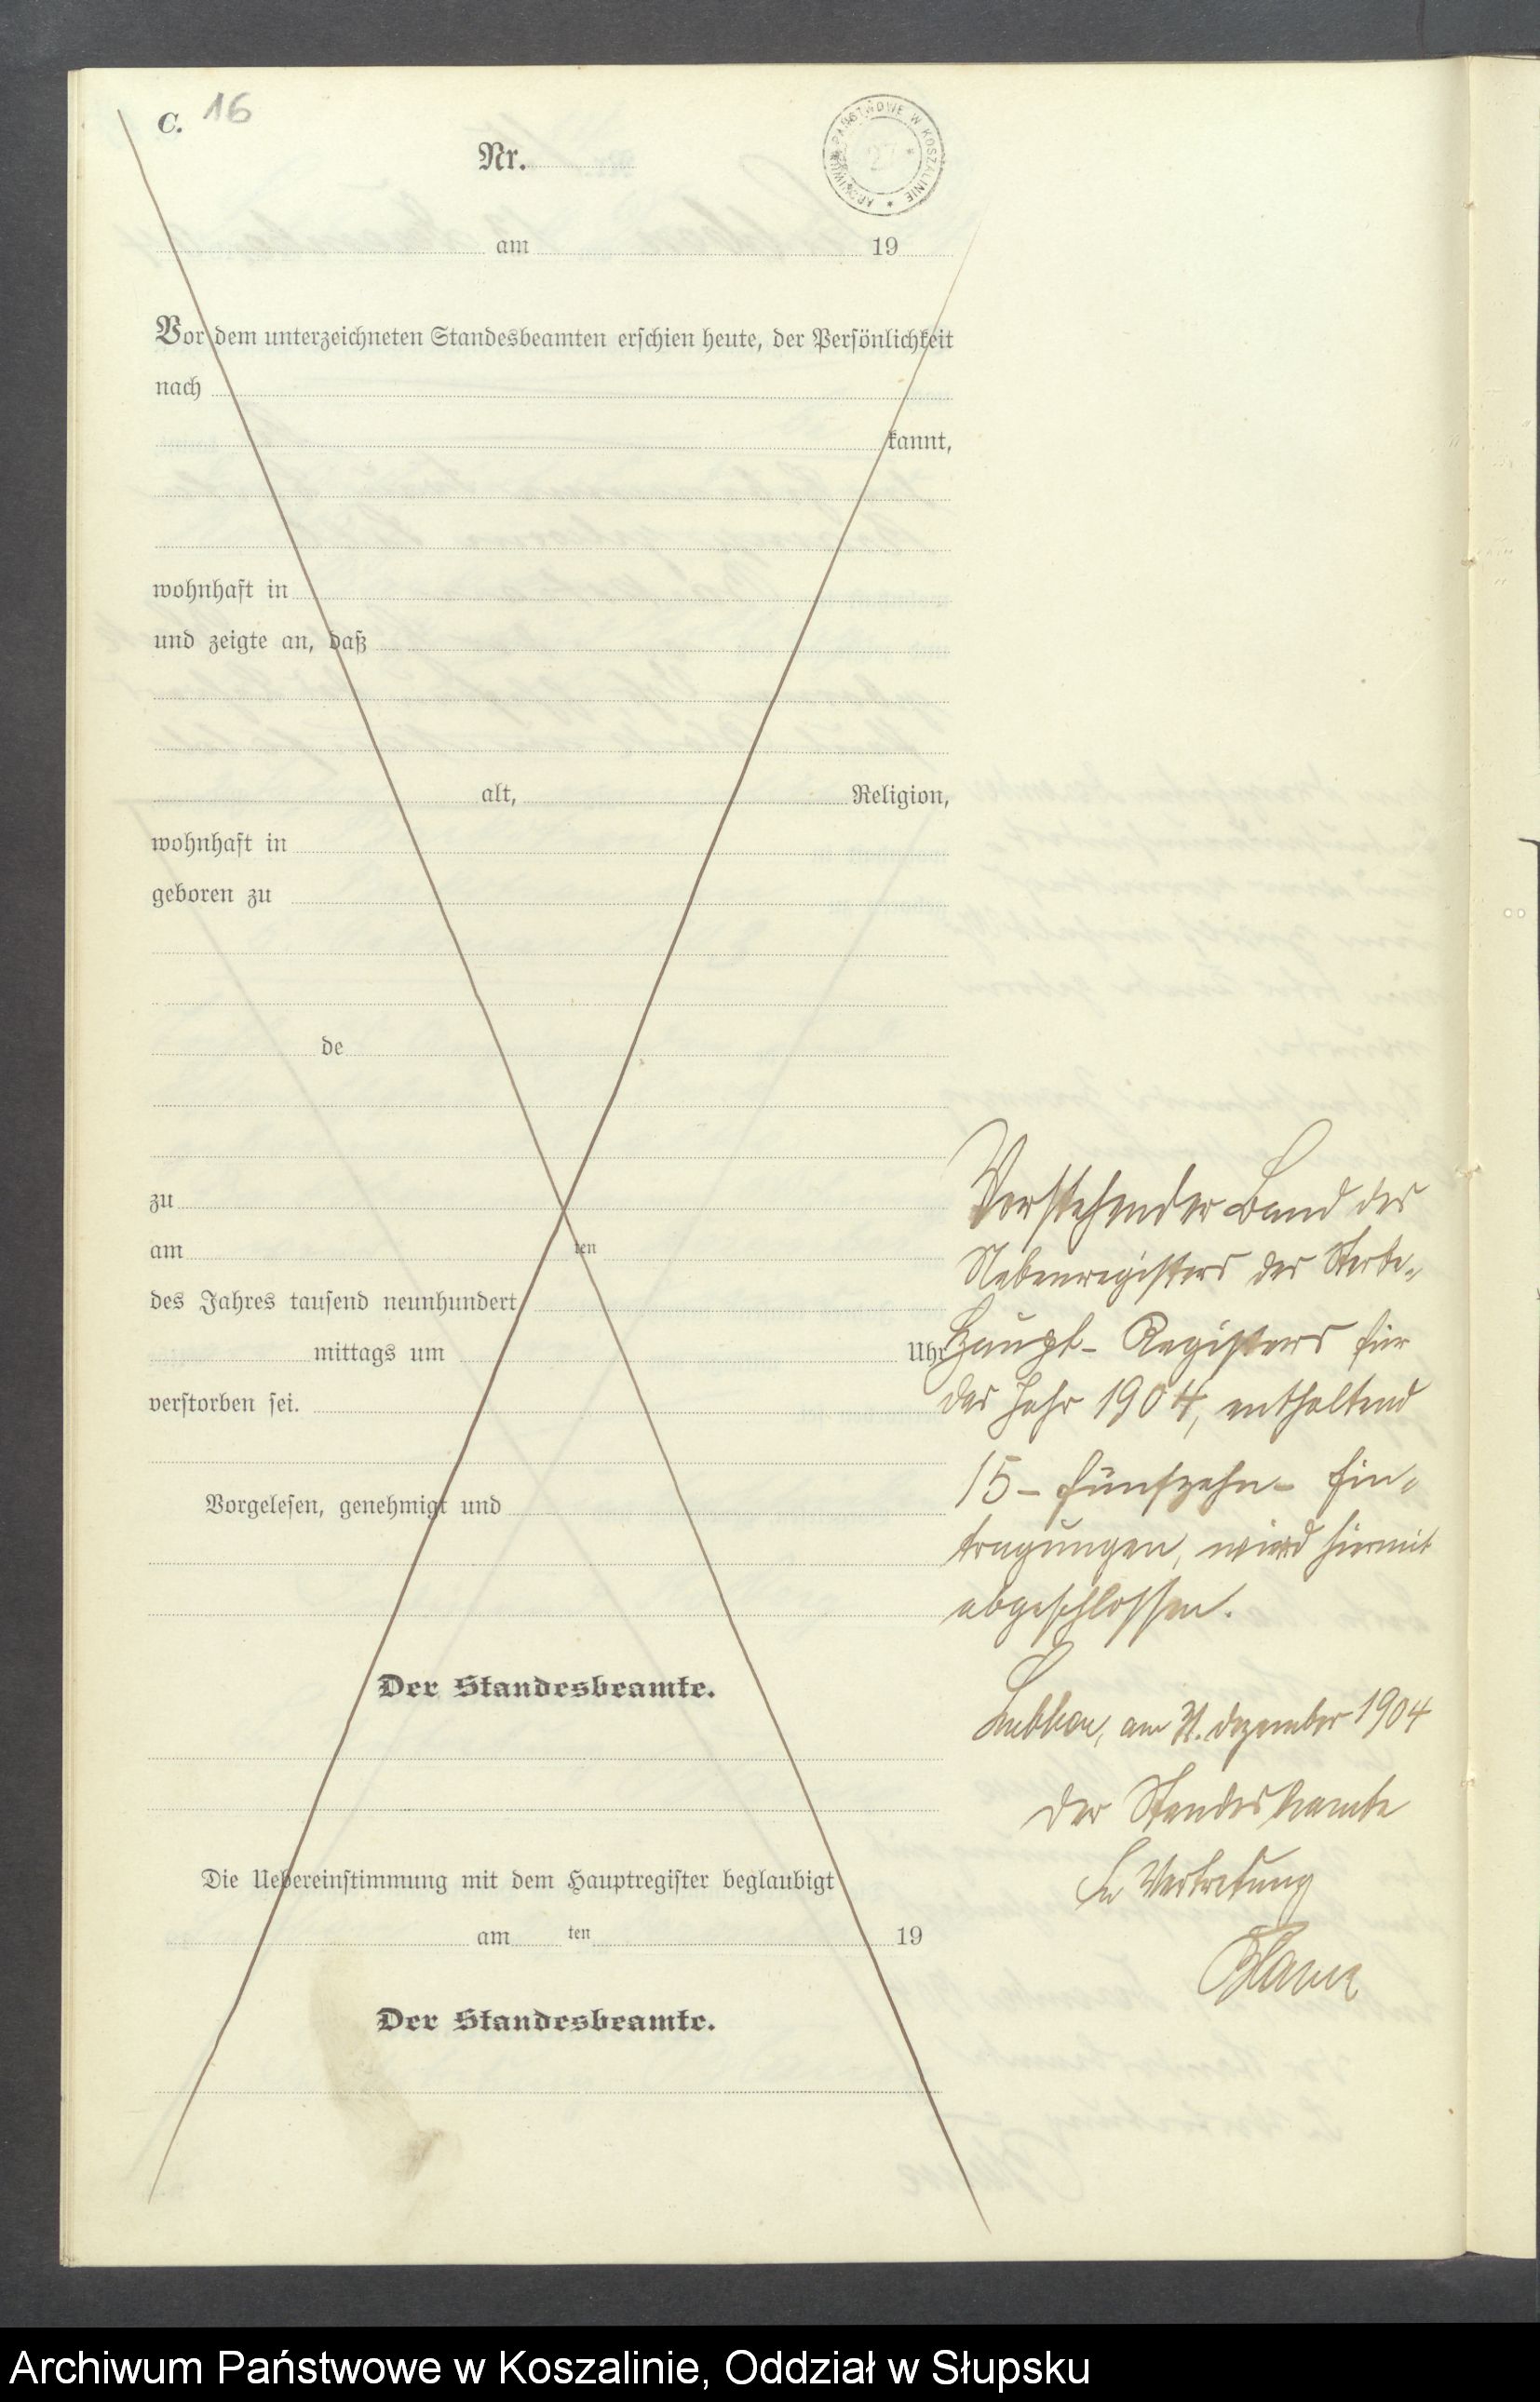 C. 16
Nr.
ARCHIWUM PAŃSTWOWE W KOSZALINIE * 27 *
am 19
Vor dem unterzeichneten Standesbeamten erschien heute, der Persönlichkeit
nach
kannt,
wohnhaft in
und zeigte an, daß
alt, Religion,
wohnhaft in
geboren zu
de
zu
am ten
des Jahres tausend neunhundert
mittags um Uhr
verstorben sei.
Vorgelesen, genehmigt und
Der Standesbeamte.
Die Uebereinstimmung mit dem Hauptregister beglaubigt
am ten 19
Der Standesbeamte.
Vorstehender Band des
Nebenregisters des Sterbe-
Haupt- Registers für
das Jahr 1904, enthaltend
15 - fünfzehn - Ein-
tragungen, wird hiermit
abgeschlossen.
am 31. Dezember 1904
Der Standesbeamte
In Vertretung
Archiwum Państwowe w Koszalinie, Oddział w Słupsku